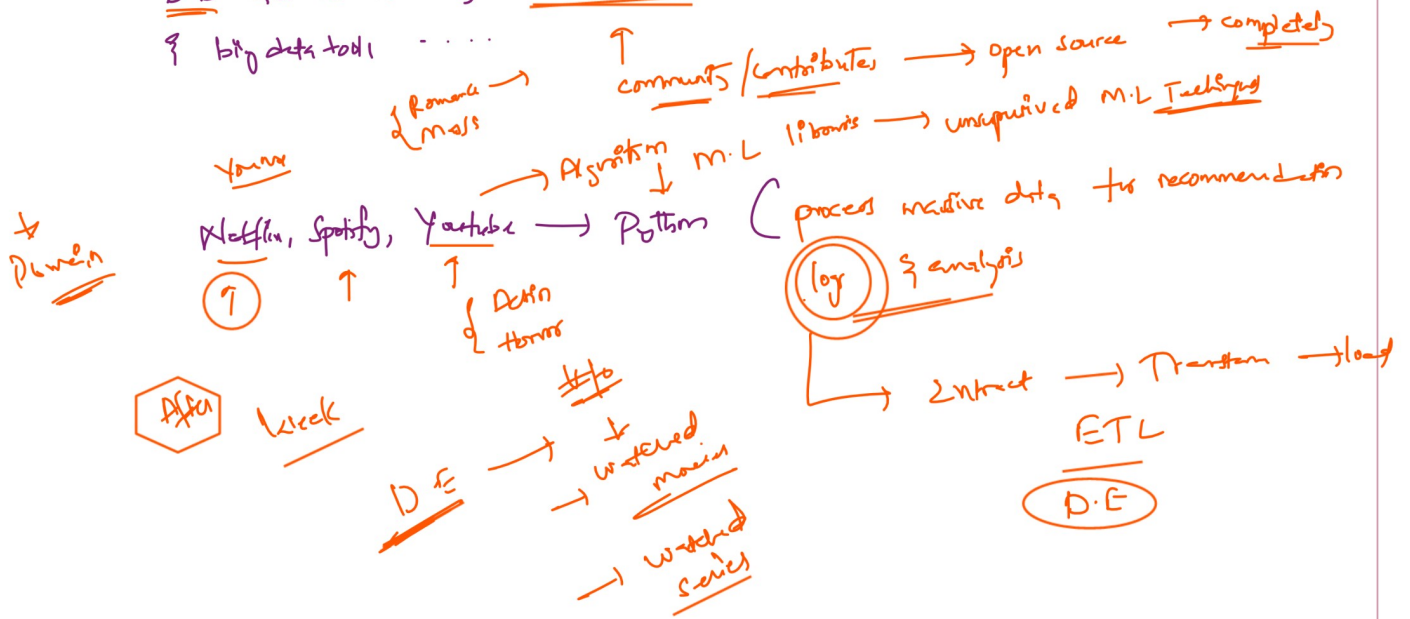 & big data tools ....
community/contributes → open source → completely
{ Romance
mass
Algorithm
M.L libraries → unsupervised M.L Techniques
Netflix, Spotify, Youtube → Python ( process massive data for recommendation
& analysis
log
Domain
{ Action
Horror
After week
D.E → Info
→ watched movies
→ watched series
Extract → Transform → load
ETL
D.E